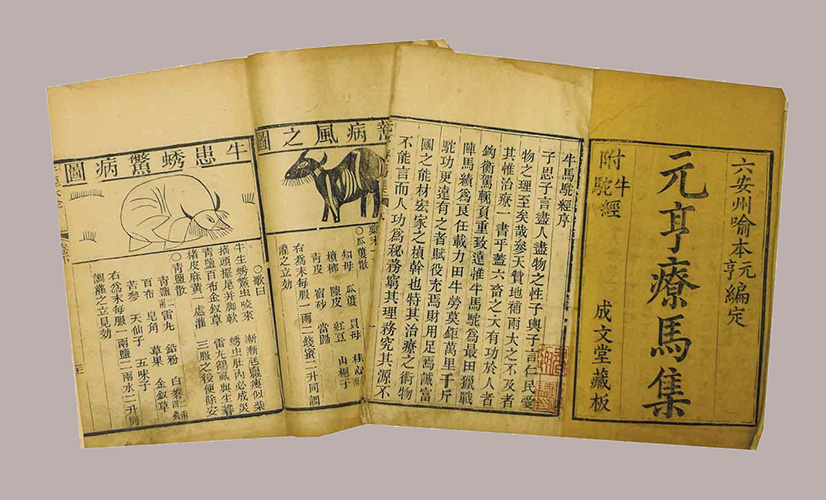 六安州喻本元亨編定
元亨療馬集
附牛駝經
成文堂藏板
牛馬駝經序
子思子言盡人盡物之性子輿子言仁民愛
物之理至矣哉參天贊地補兩大之不及者
其惟治療一書乎蓋六畜之大有功於人者
鈞衡駕負重致遠惟牛馬駝為最田獵戰
陣馬績為良任載力田牛勞莫鉅萬里千斤
駝功更遠有之者賦役充焉財用足焉誠富
國之能材安家之楨幹也特其治療之術物
不能言而人功為秘務窮其理務究其源不
病風之圖
○瓜蔞散
知母 瓜蔞 貝母 桂心
檳榔 陳皮 紅豆 山梔子
青皮 宿砂 當歸
右為末每服一兩二錢蜜二升同調
灌之立効
牛患蜏鱉病圖
○歌曰
牛生蜏鱉虫咬來 漸漸毛焦瘦似柴
搖頭擺尾并脚軟 蜏虫肚內必成災
青鹽百布金釵草 雷丸鶴虱與生薑
楮皮麻黃一處灌 三服之後便除安
青鹽散
青鹽 雷丸 鉛粉 白礬
百布 皂角 草果 金釵草
苦參 天仙子 五味子
右為末每服一兩鹽二兩水二升同
調灌之立見効